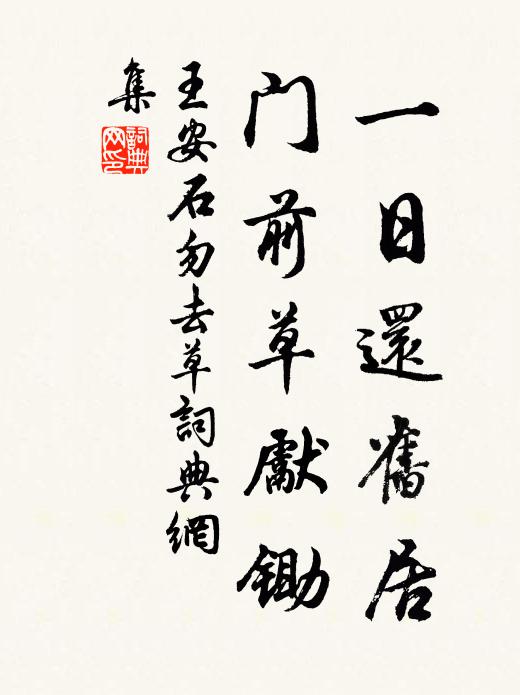 一日還舊居
門前草獻鋤
王安石勿去草詞典網
集
詞典網印